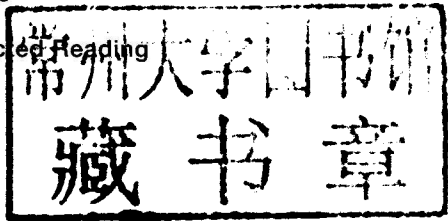 cted Reading
常州大学图书馆
藏书章